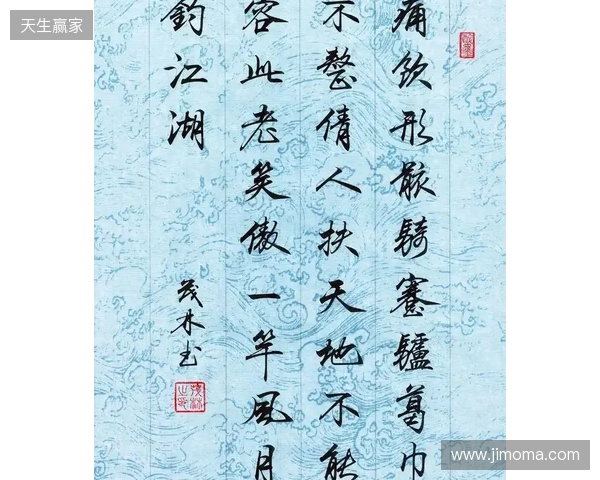 天生赢家
痛饮形骸騎蹇驢葛巾
不整倩人扶天地不能
容此老笑傲一竿風月
釣江湖
茂林书
www.jimoma.com